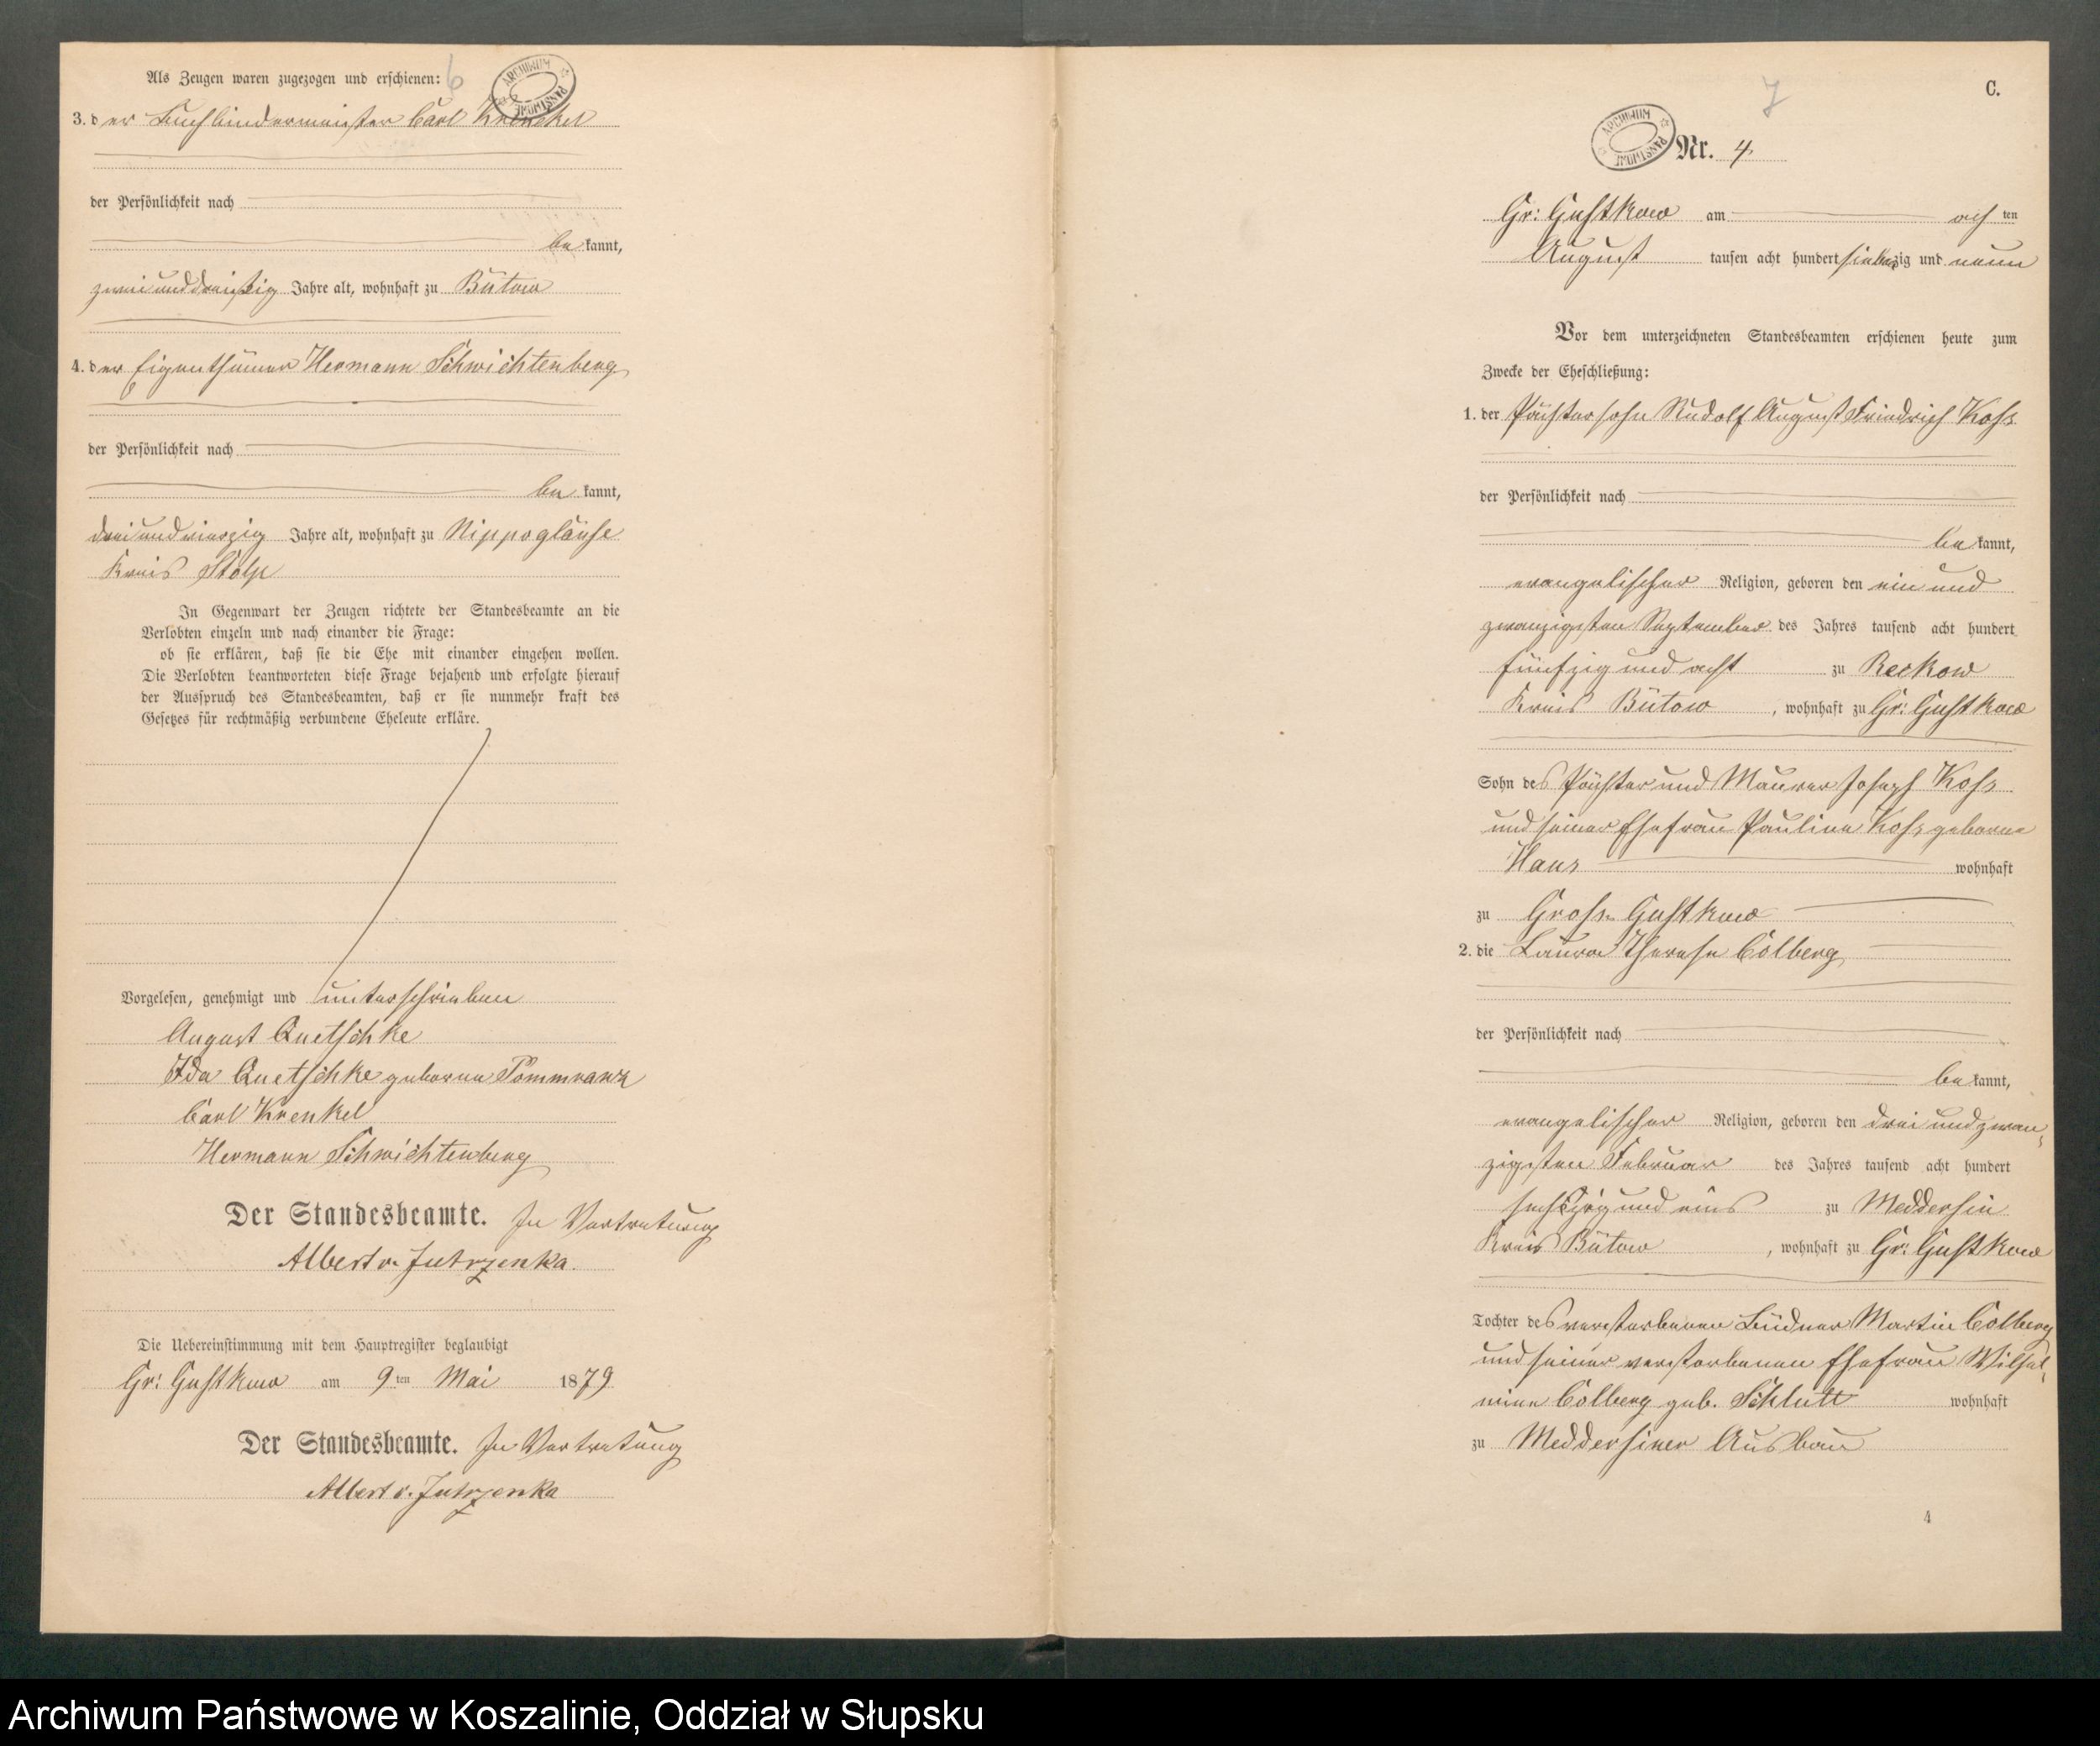 6
Als Zeugen waren zugezogen und erschienen:
ARCHIWUM PAŃSTWOWE
3. der Buchbindermeister Carl Krenkel
der Persönlichkeit nach
bekannt,
zweiunddreißig Jahre alt, wohnhaft zu Bütow
4. der Eigenthümer Hermann Schwichtenberg
der Persönlichkeit nach
bekannt,
dreiundvierzig Jahre alt, wohnhaft zu Nippoglänse
Kreis Stolp
In Gegenwart der Zeugen richtete der Standesbeamte an die
Verlobten einzeln und nach einander die Frage:
ob sie erklären, daß sie die Ehe mit einander eingehen wollen.
Die Verlobten beantworteten diese Frage bejahend und erfolgte hierauf
der Ausspruch des Standesbeamten, daß er sie nunmehr kraft des
Gesetzes für rechtmäßig verbundene Eheleute erkläre.
Vorgelesen, genehmigt und unterschrieben
August Quetschke
Ida Quetschke geborne Pommranz
Carl Krenkel
Hermann Schwichtenberg
Der Standesbeamte. In Vertretung
Albert v. Jutrzenka
Die Uebereinstimmung mit dem Hauptregister beglaubigt
Gr: Gustkow am 9ten Mai 1879
Der Standesbeamte. In Vertretung
Albert v. Jutrzenka
7
C.
ARCHIWUM PAŃSTWOWE
Nr. 4
Gr: Gustkow am achten
August tausen acht hundert siebenzig und neun
Vor dem unterzeichneten Standesbeamten erschienen heute zum
Zwecke der Eheschließung:
1. der Pächtersohn Rudolf August Friedrich Koss
der Persönlichkeit nach
bekannt,
evangelischer Religion, geboren den ein und
zwanzigsten September des Jahres tausend acht hundert
fünfzig und acht zu Reckow
Kreis Bütow, wohnhaft zu Gr: Gustkow
Sohn des Pächter und Maurer Joseph Koss
und seiner Ehefrau Pauline Koss geborne
Hans wohnhaft
zu Gross Gustkow
2. die Laura Therese Colberg
der Persönlichkeit nach
bekannt,
evangelischer Religion, geboren den drei und zwan-
zigsten Februar des Jahres tausend acht hundert
sechszig und eins zu Meddersin
Kreis Bütow, wohnhaft zu Gr: Gustkow
Tochter des verstorbenen Büdner Martin Colberg
und seiner verstorbenen Ehefrau Wilhel-
mine Colberg geb. Schlutt wohnhaft
zu Meddersiner Ausbau
4
Archiwum Państwowe w Koszalinie, Oddział w Słupsku